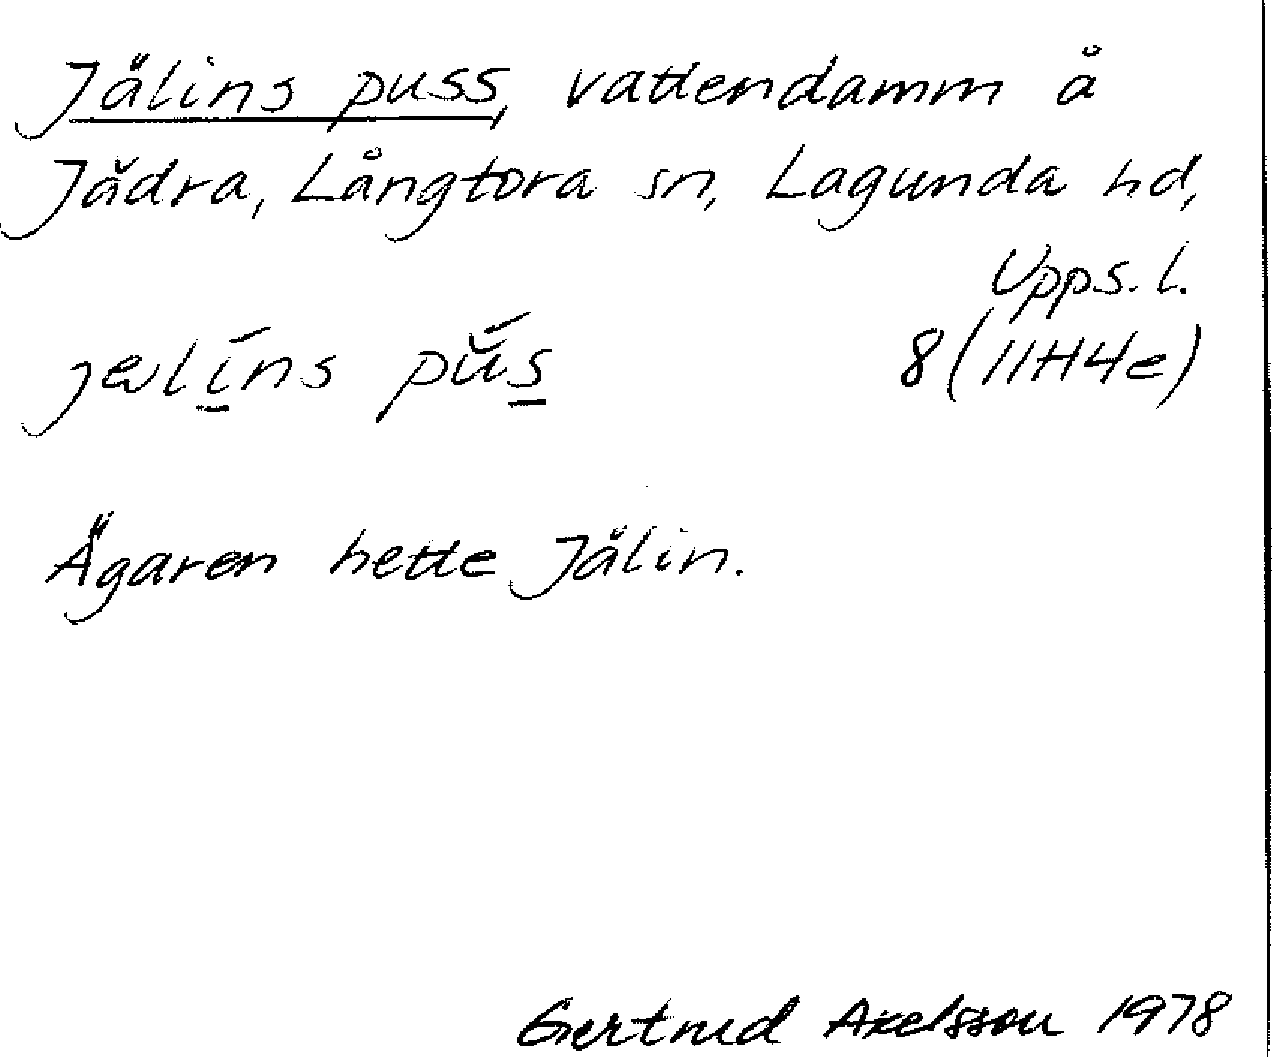 Jälins puss, vattendamm å
Jädra, Långtora sn, Lagunda hd,
Upps. l.
8 (11H4e)
Ägaren hette Jälin.
Gertrud Axelsson 1978